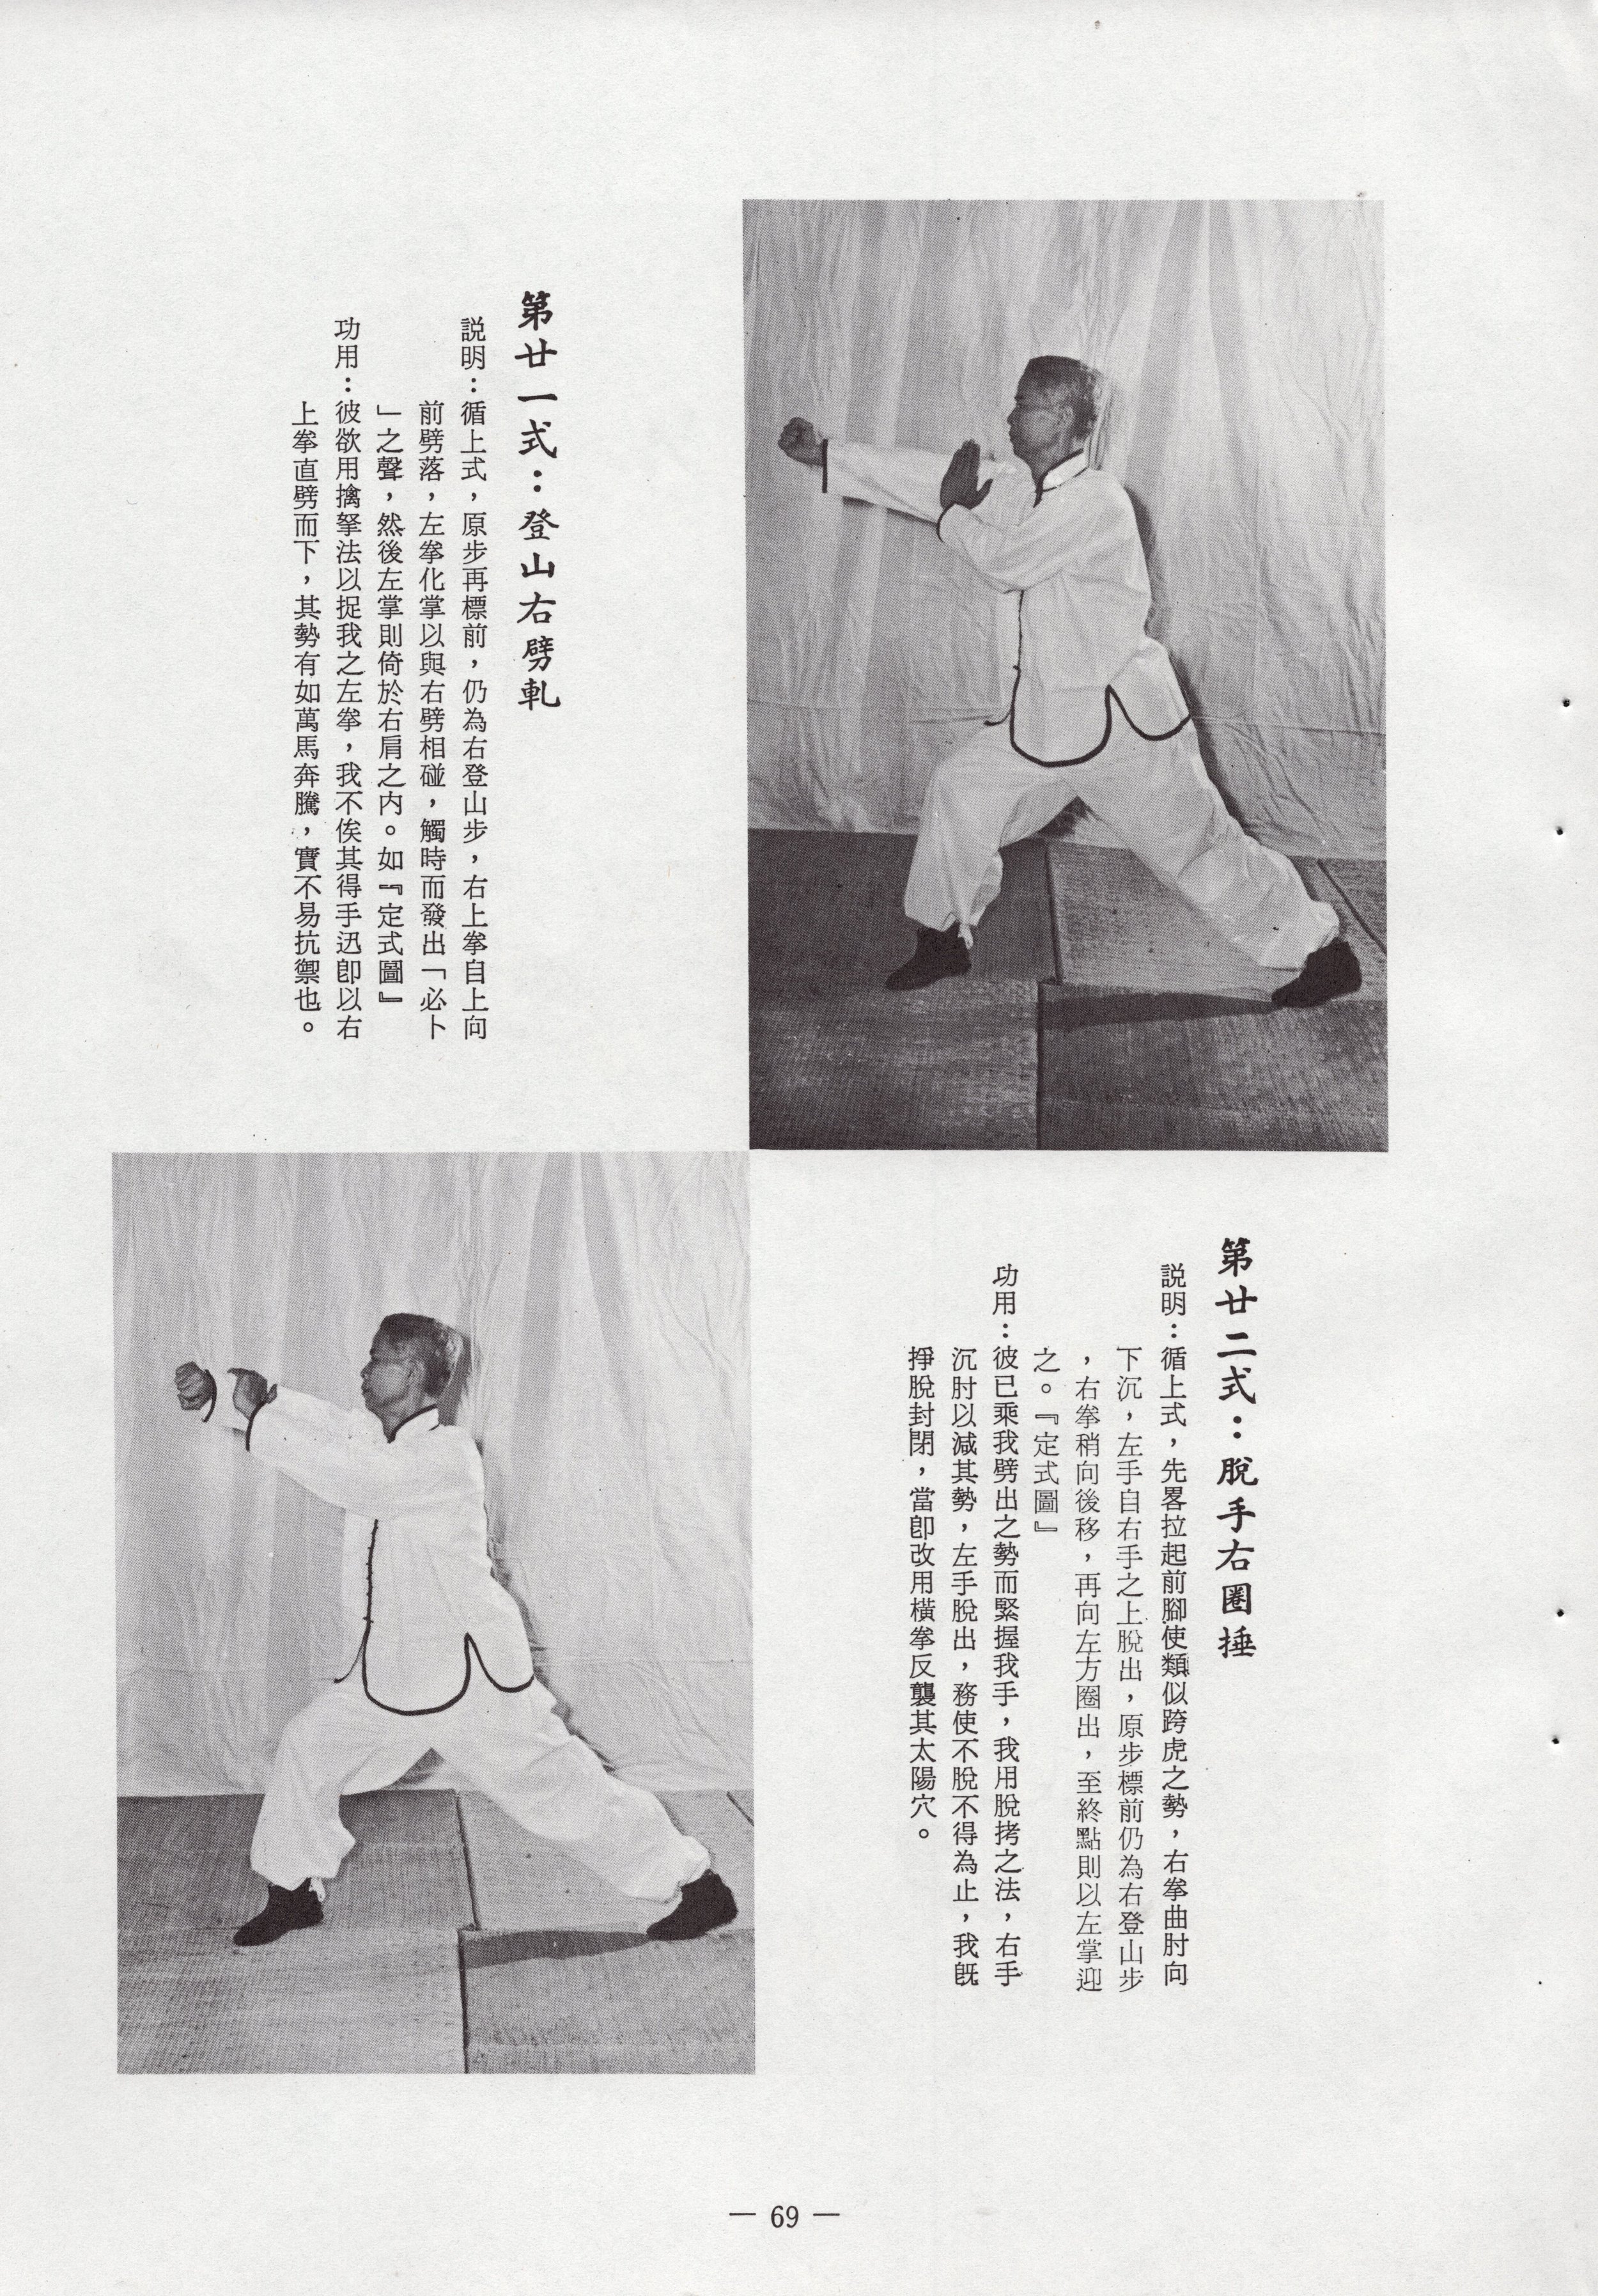 第廿一式：登山右劈軋
説明：循上式，原步再標前，仍為右登山步，右上拳自上向
前劈落，左拳化掌以與右劈相碰，觸時而發出「必卜
」之聲，然後左掌則倚於右肩之内。如『定式圖』
功用：彼欲用擒拏法以捉我之左拳，我不俟其得手迅即以右
上拳直劈而下，其勢有如萬馬奔騰，實不易抗禦也。
第廿二式：脫手右圈捶
説明：循上式，先畧拉起前腳使類似跨虎之勢，右拳曲肘向
下沉，左手自右手之上脫出，原步標前仍為右登山步
，右拳稍向後移，再向左方圈出，至終點則以左掌迎
之。『定式圖』
功用：彼已乘我劈出之勢而緊握我手，我用脫拷之法，右手
沉肘以減其勢，左手脫出，務使不脫不得為止，我旣
掙脫封閉，當卽改用橫拳反襲其太陽穴。
— 69 —